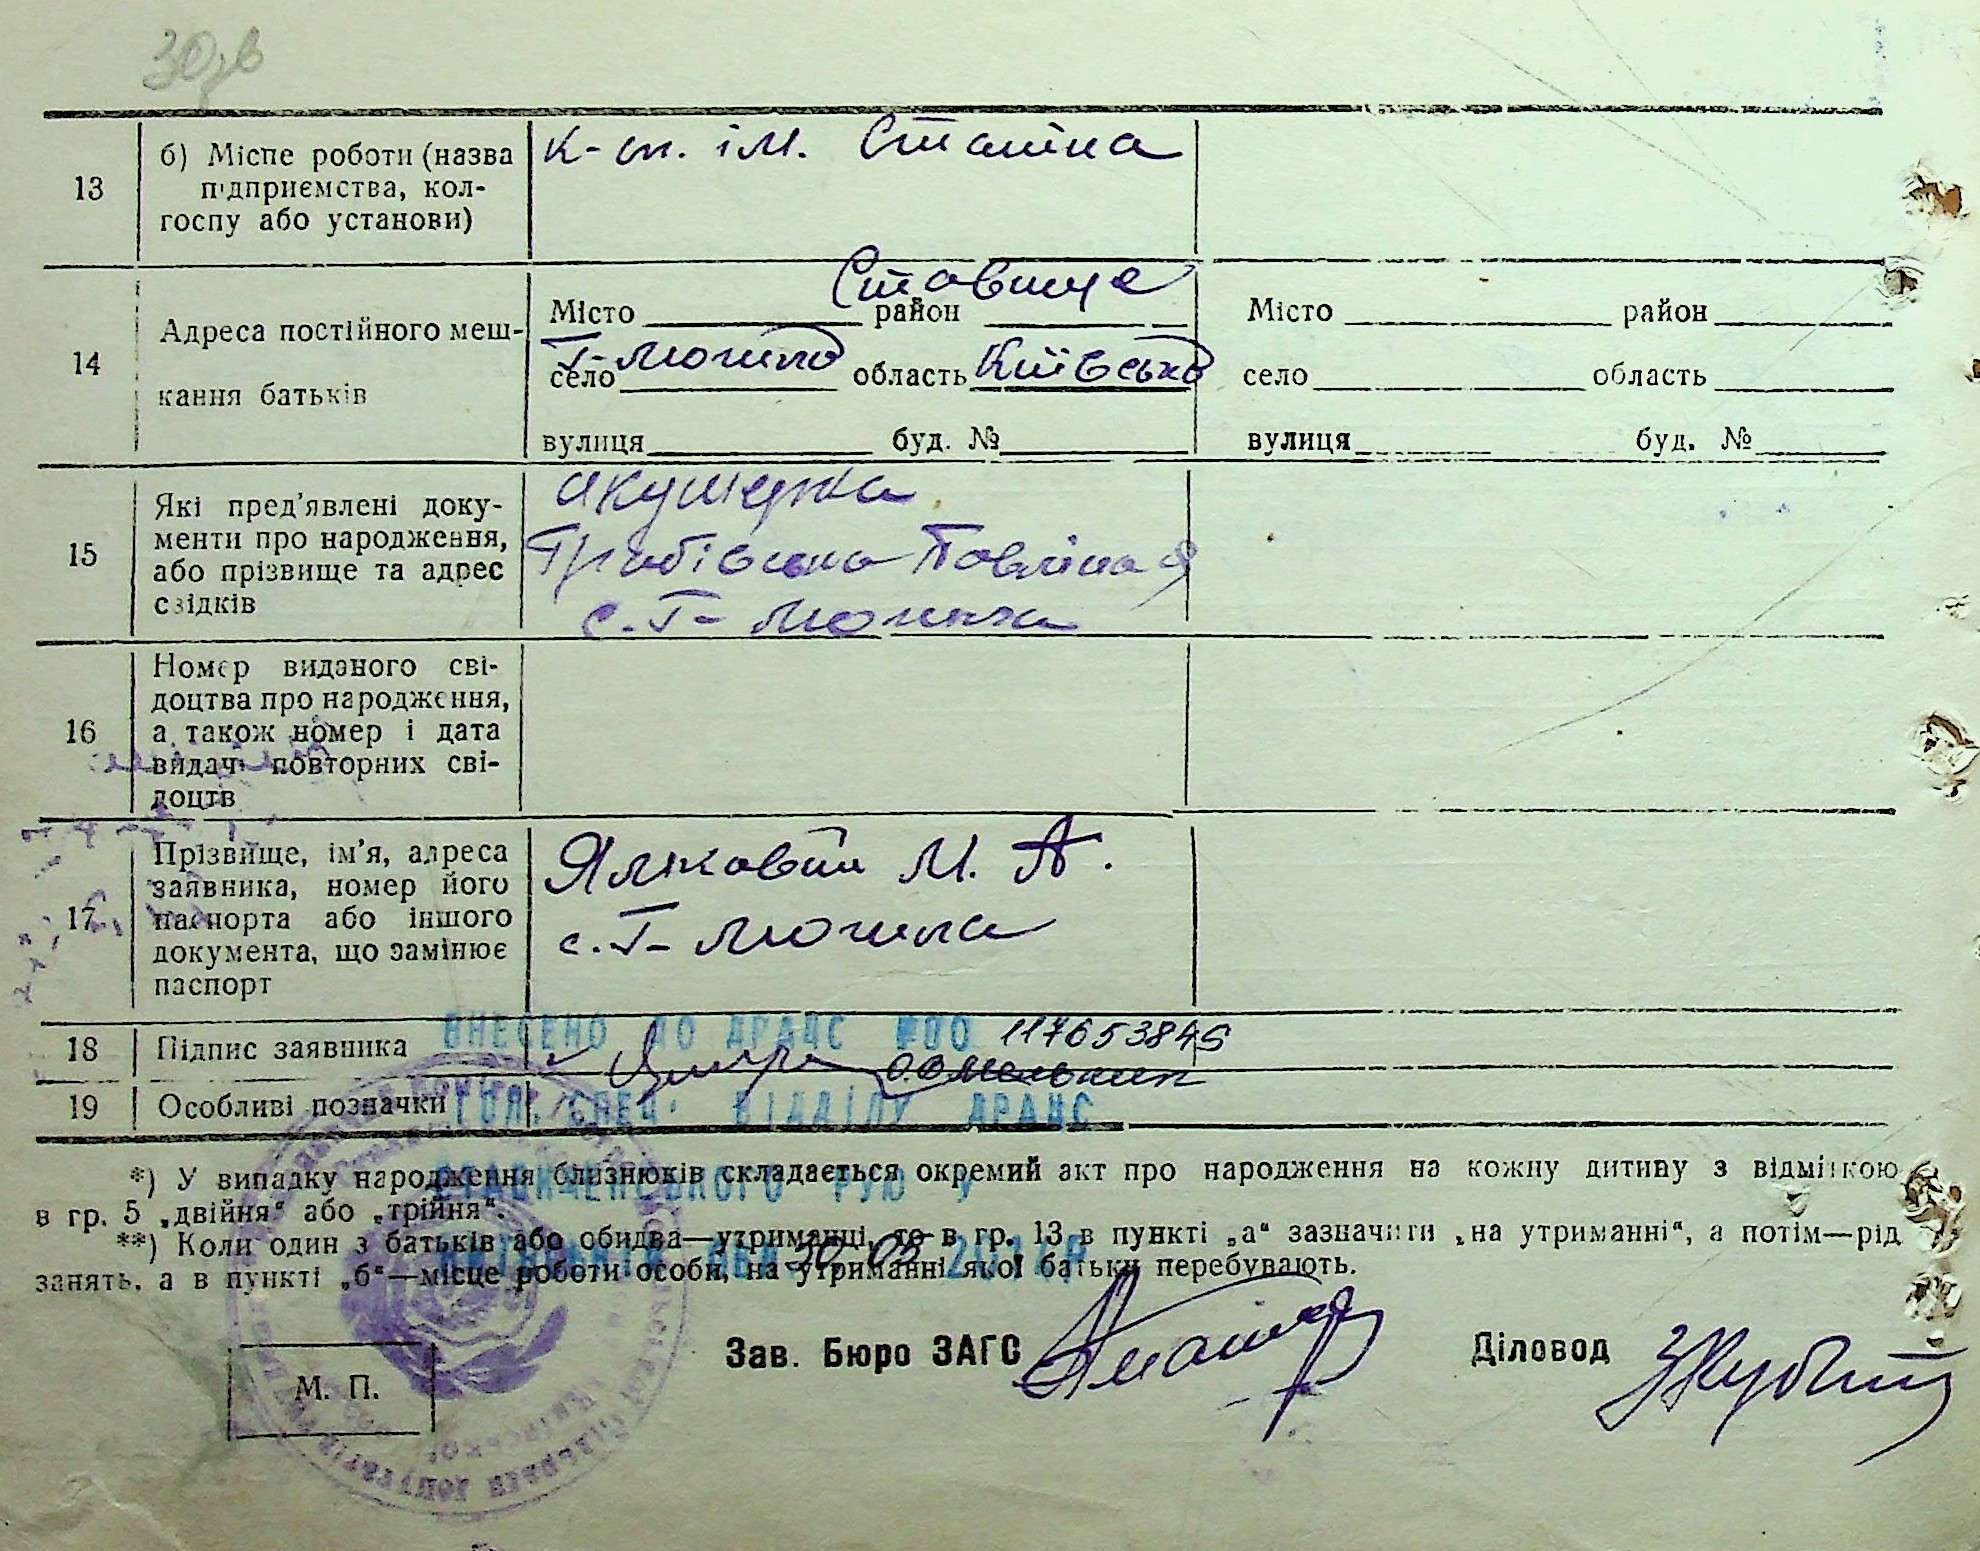 13
б) Місце роботи (назва
підприємства, кол-
госпу або установи)
К-сп. ім. Сталіна
14
Адреса постійного меш-
кання батьків
Ставище
Місто район
Т-Могила Київська
село область
вулиця буд. №
Місто район
село область
вулиця буд. №
15
Які пред'явлені доку-
менти про народження,
або прізвище та адрес
свідків
Акушерка
Павліна
с. Т-Могила
16
Номер виданого сві-
доцтва про народження,
а також номер і дата
видачі повторних сві-
доцтв
17
Прізвище, ім'я, адреса
заявника, номер його
паспорта або іншого
документа, що замінює
паспорт
М. А.
с. Т-Могила
ВНЕСЕНО ДО ДРАЦС 117653845
18
Підпис заявника
О.В Мельник
19
Особливі позначки
ГОЛ. СПЕЦ. ВІДДІЛУ ДРАЦС
*) У випадку народження близнюків складається окремий акт про народження на кожну дитину з відміткою
СТАВИЩЕНСЬКОГО РУЮ У
в гр. 5 „двійня“ або „трійня“.
**) Коли один з батьків або обидва—утриманці, то в гр. 13 в пункті „а“ зазначити „на утриманні“, а потім—рід
занять, а в пункті „б“—місце роботи особи, на утриманні якої батьки перебувають.
Зав. Бюро ЗАГС
Діловод
М. П.